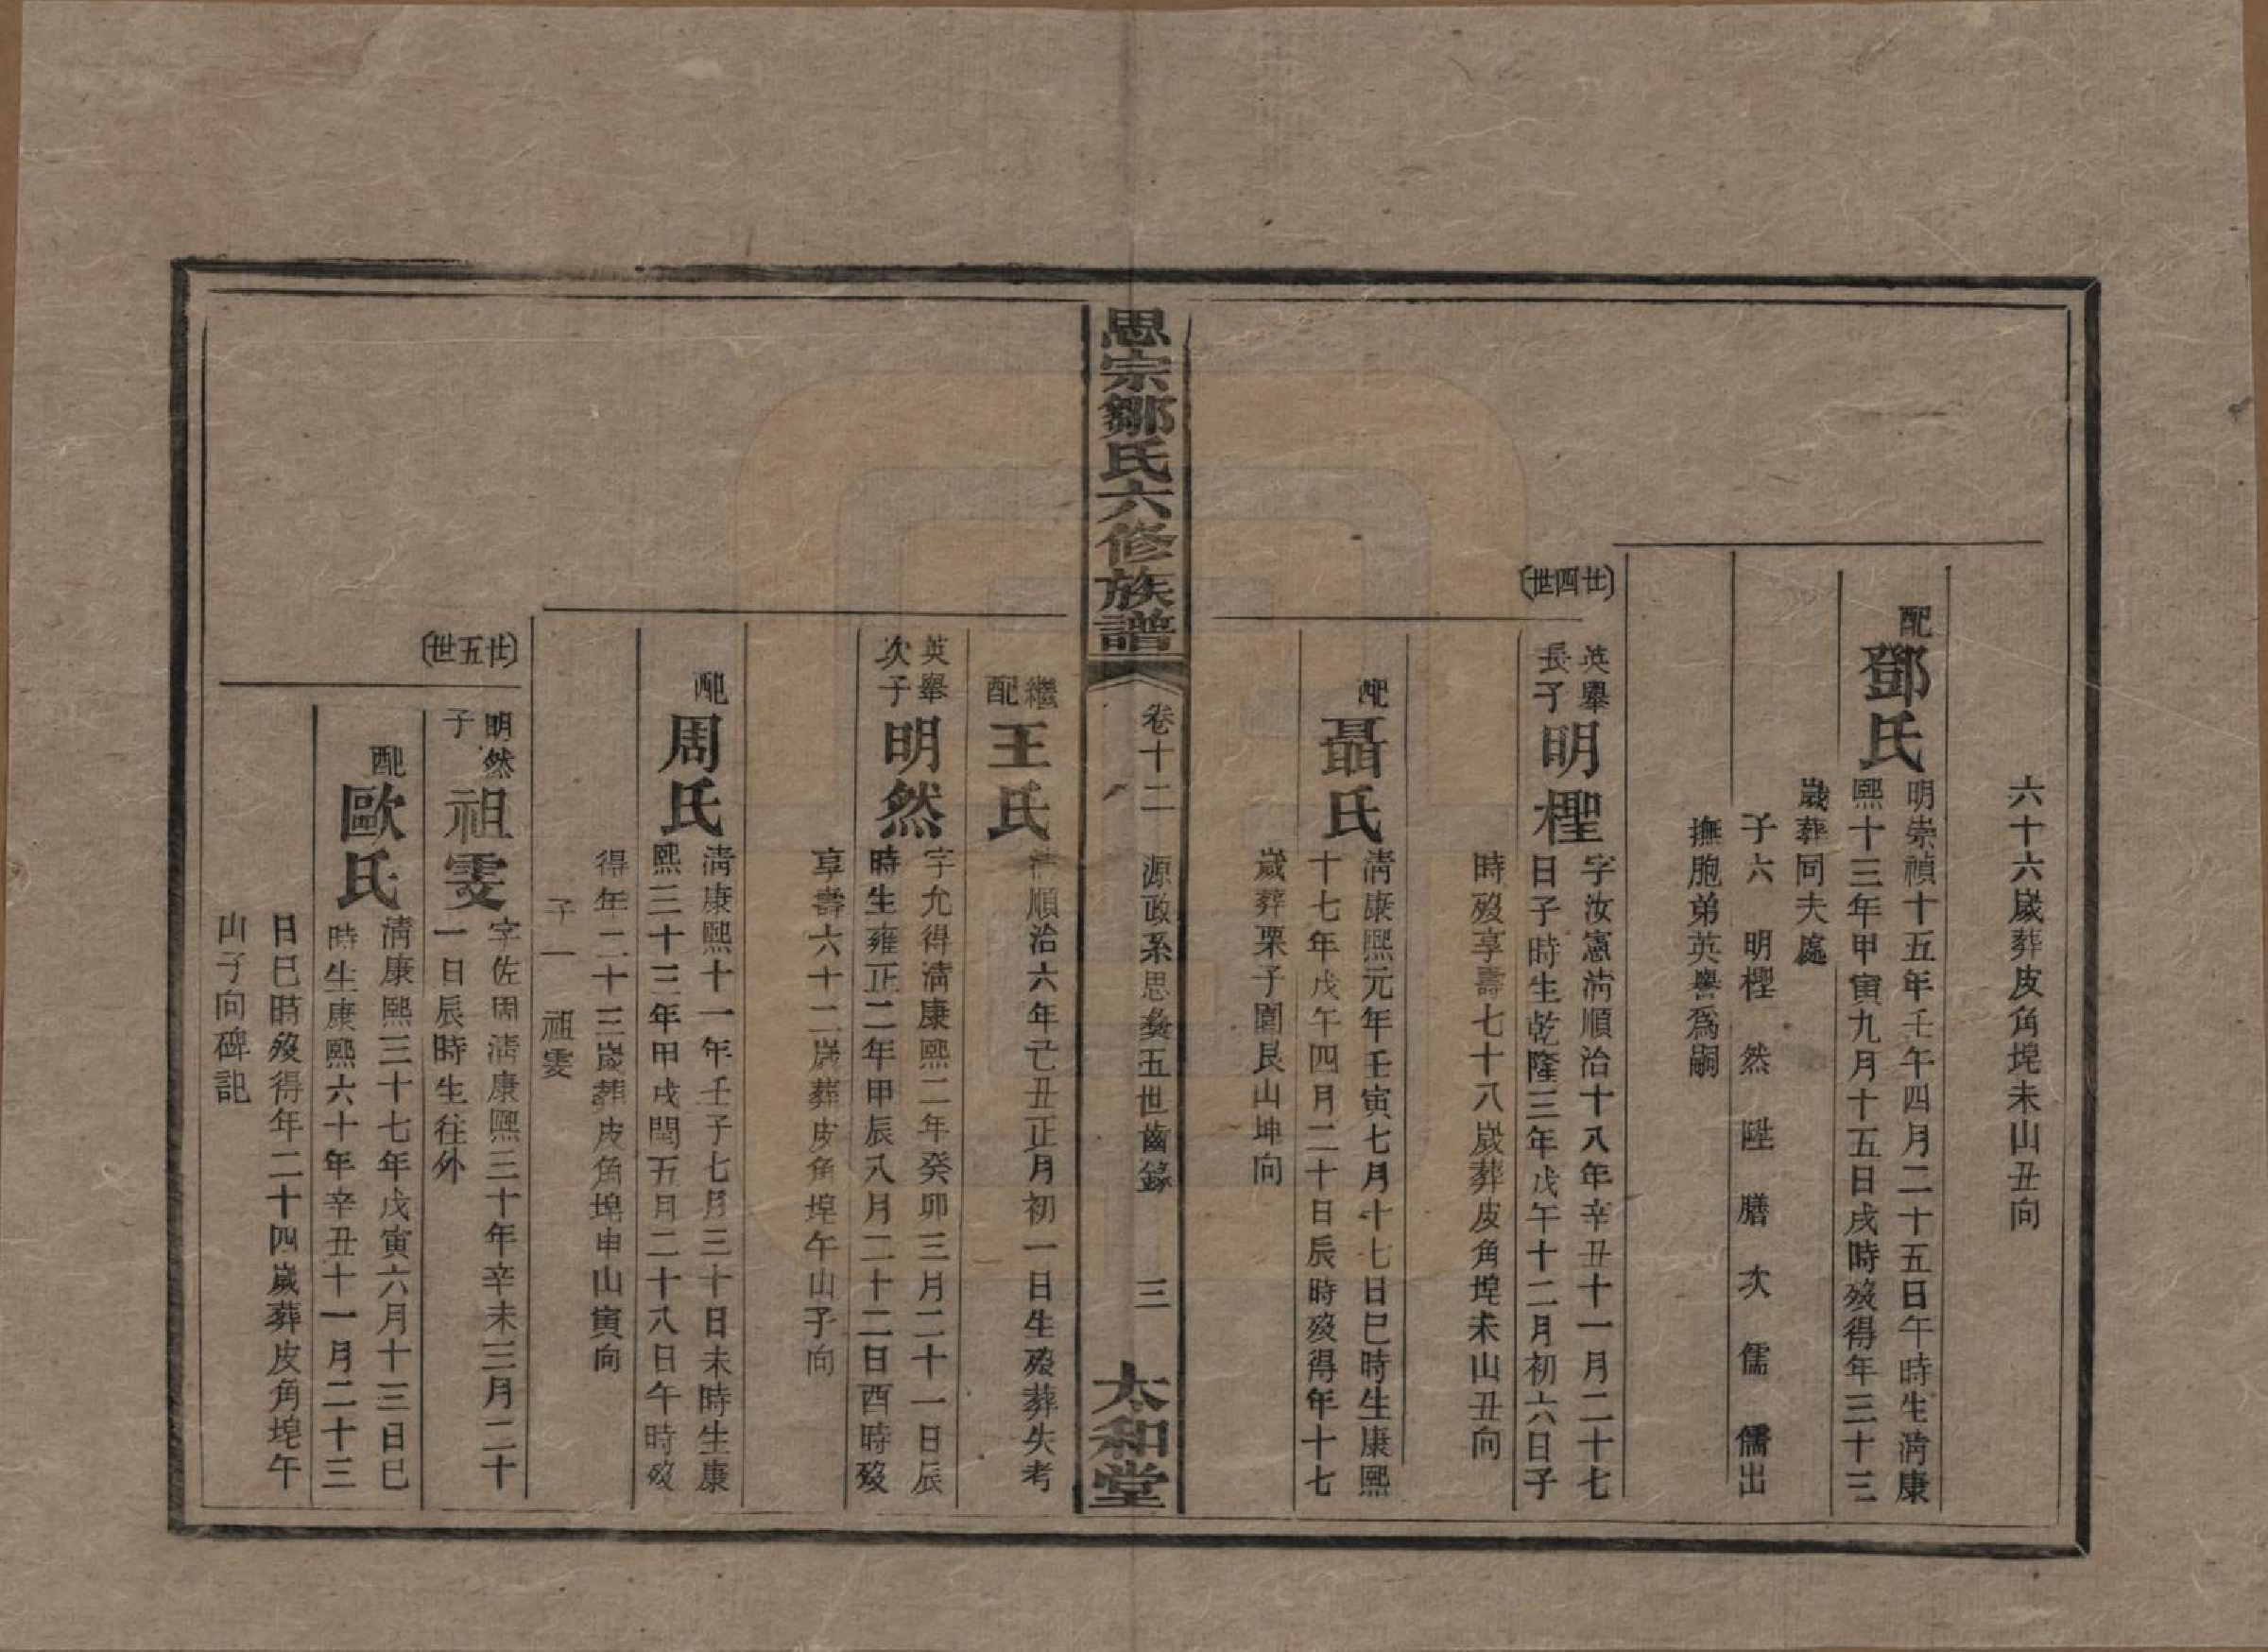 六十六歲葬皮角埠未山丑向
配
鄧氏
明崇禎十五年壬午四月二十五日午時生淸康
熙十三年甲寅九月十五日戌時歿得年三十三
歲葬同夫處
子六 明檉 然 陞 膳 次 儒 儒出
撫胞弟英譽爲嗣
(廿四世)
英舉
長子
明檉
字汝憲淸順治十八年辛丑十一月二十七
日子時生乾隆三年戊午十二月初六日子
時歿享壽七十八歲葬皮角埠未山丑向
配
聶氏
淸康熙元年壬寅七月十七日巳時生康熙
十七年戊午四月二十日辰時歿得年十七
歲葬栗子園艮山坤向
思宗鄒氏六修族譜
卷十二 源政系思彝五世齒錄
三
太和堂
繼
配
王氏
淸順治六年己丑正月初一日生歿葬失考
英舉
次子
明然
字允得淸康熙二年癸卯三月二十一日辰
時生雍正二年甲辰八月二十二日酉時歿
享壽六十二歲葬皮角埠午山子向
配
周氏
淸康熙十一年壬子七月三十日未時生康
熙三十三年甲戌閏五月二十八日午時歿
得年二十三歲葬皮角埠申山寅向
子一 祖雯
(廿五世)
明然
子
祖雯
字佐周淸康熙三十年辛未三月二十
一日辰時生往外
配
歐氏
淸康熙三十七年戊寅六月十三日巳
時生康熙六十年辛丑十一月二十三
日巳時歿得年二十四歲葬皮角埠午
山子向碑記